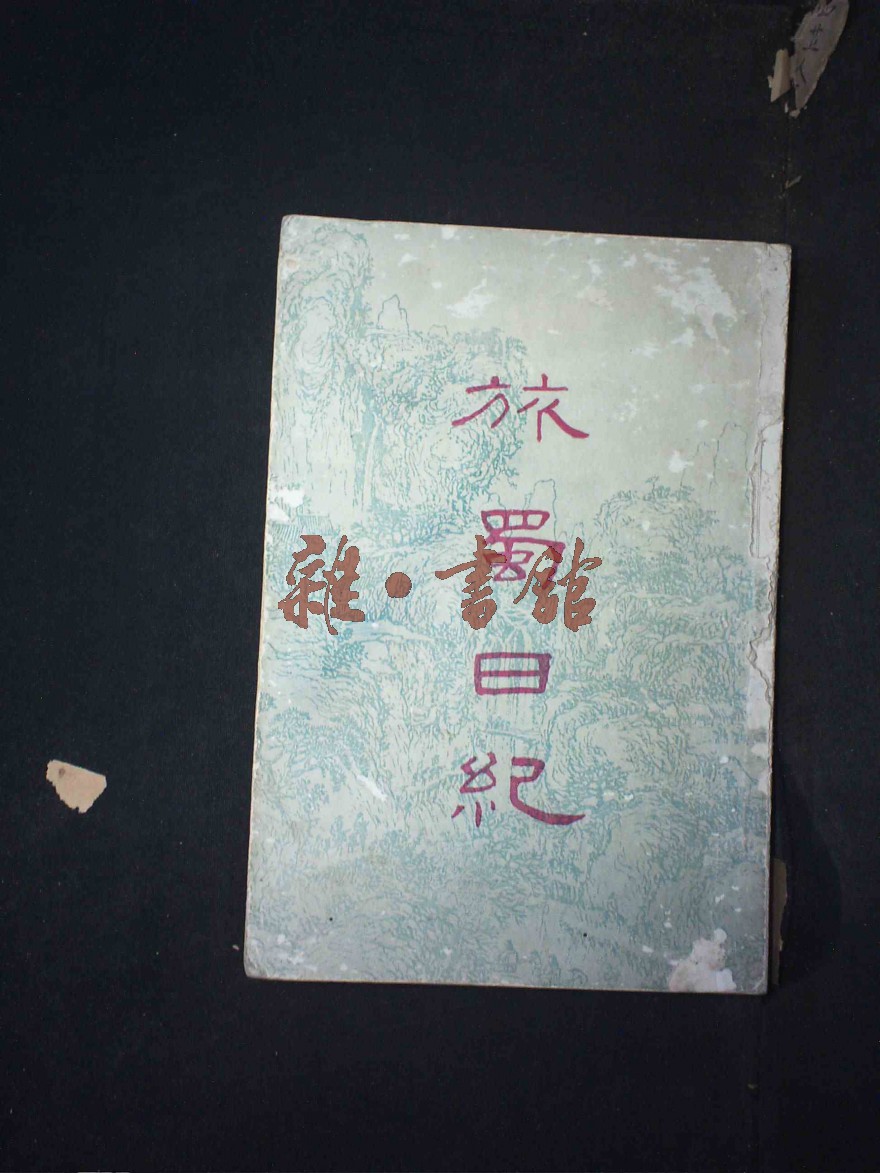 旅蜀日紀
雜·書館